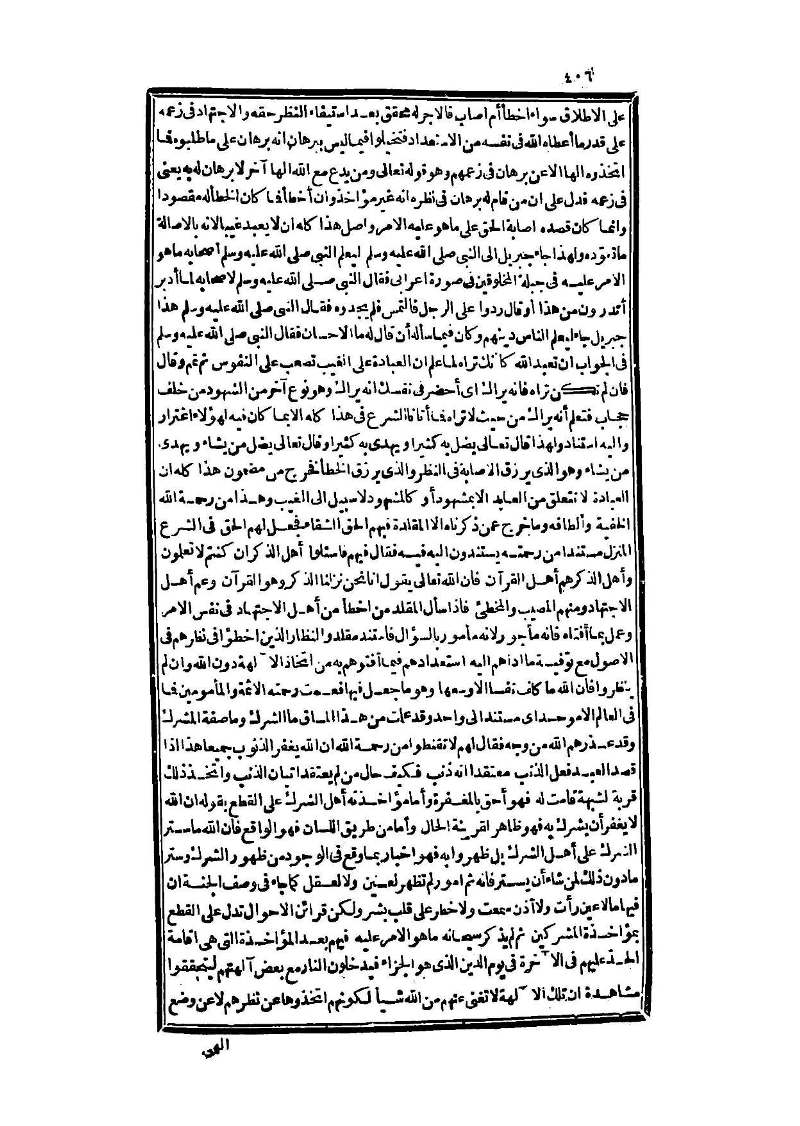 ٤٠٦
على الاطلاق سواء اخطأ أم أصاب فالاجر له محقق بعد استيفاء النظر حقه والاجتهاد فى زعمه
على قدر ما أعطاه الله فى نفسه من الاستعداد فتخيلوا فيما ليس ببرهان انه برهان على ما طلبوه فما
اتخذوه الها الاعن برهان فى زعمهم وهو قوله تعالى ومن يدع مع الله الها آخر لا برهان له به يعنى
فى زعمه فدل على ان من قام له برهان فى نظره انه غير مؤاخذ وان أخطأ فما كان الخطأ له مقصودا
وانما كان قصده اصابة الحق على ما هو عليه الامر واصل هذا كله ان لا يعبد غيبا لانه بالاصالة
ماتعوده ولهذا جاء جبريل الى النبى صلى الله عليه وسلم ليعلم النبى صلى الله عليه وسلم أصحابه ما هو
الامر عليه فى جبلة المخلوقين فى صورة اعرابى فقال النبى صلى الله عليه وسلم لاصحابه لما أدبر
أتدرون من هذا أو قال ردوا على الرجل فالتمس فلم يجدوه فقال النبى صلى الله عليه وسلم هذا
جبريل جاء ليعلم الناس دينهم وكان فيما سأله أن قال له ما الاحسان فقال النبى صلى الله عليه وسلم
فى الجواب ان تعبد الله كأنك تراه لما علم ان العبادة على الغيب تصعب على النفوس ثم تمم وقال
فان لم تكن تراه فانه يراك اى أحضر فى نفسك انه يراك وهو نوع آخر من الشهود من خلف
حجاب فتعلم أنه يراك من حيث لا تراه فما أتانا الشرع فى هذا كله الابما كان فيه لهؤلاء اغترار
واليه استناد ولهذا قال تعالى يضل به كثيرا ويهدى به كثيرا وقال تعالى يضل من يشاء ويهدى
من يشاء وهو الذى يرزق الاصابة فى النظر والذى يرزق الخطأ فخرج من مضمون هذا كله ان
العبادة لا تتعلق من العابد الابمشهود أو كالمشهود لا سبيل الى الغيب وهذا من رحمة الله
الخفية وألطافه وما خرج عن ذكرناه الا المقلدة فيهم الحق الشقاء فجعل لهم الحق فى الشرع
المنزل مستندا من رحمته يستندون اليه فيه فقال فيهم فاسئلوا أهل الذكر ان كنتم لا تعلمون
وأهل الذكر هم أهل القرآن فان الله تعالى يقول انا نحن نزلنا الذكر وهو القرآن وعم أهل
الاجتهاد ومنهم المصيب والمخطئ فاذا سأل المقلد من اخطأ من أهل الاجتهاد فى نفس الامر
وعمل بما أفتاه فانه مأجور لانه مأمور بالسؤال فاستند مقلدو النظار الذين اخطؤا فى نظرهم فى
الاصول مع توفية ما اداهم اليه استعدادهم فيما أفتوهم به من اتخاذ الآلهة دون الله وان لم
ينظروا فان الله ما كلف نفسا الاوسعها وهو ما جعل فيها فعمت رحمته الائمة والمأمومين فما
فى العالم الاموحد اى مستند الى واحد وقد علمت من هذا المساق ما الشرك وما صفة المشرك
وقد عذرهم الله من وجه فقال لهم لا تقنطوا من رحمة الله ان الله يغفر الذنوب جميعا هذا اذا
قصد العبد فعل الذنب معتقدا انه ذنب فكيف حال من لم يعتقد اتيان الذنب واتخذ ذلك
قربة لشبهة قامت له فهو أحق بالمغفرة وأما مؤاخذته أهل الشرك على القطع بقوله ان الله
لا يغفر أن يشرك به فهو ظاهر لقرينة الحال وأما من طريق اللسان فهو الواقع فان الله ما ستر
الشرك على أهل الشرك بل ظهروا به فهو اخبار بما وقع فى الوجود من ظهور الشرك وستر
مادون ذلك لمن شاء أن يستر فانه ثم امور لم تظهر لعين ولا لعقل كما جاء فى وصف الجنة ان
فيها مالا عين رأت ولا أذن سمعت ولا خطر على قلب بشر ولكن قرائن الاحوال تدل على القطع
بمؤاخذة المشركين ثم لم يذكر سبحانه ما هو الامر عليه فيهم بعد المؤاخذة التى هى اقامة
الحد عليهم فى الآخرة فى يوم الدين الذى هو الجزاء فيدخلون النار مع بعض آلهتهم ليتحققوا
مشاهدة ان تلك الآلهة لا تغنى عنهم من الله شيأ لكونهم اتخذوها عن نظرهم لا عن وضع